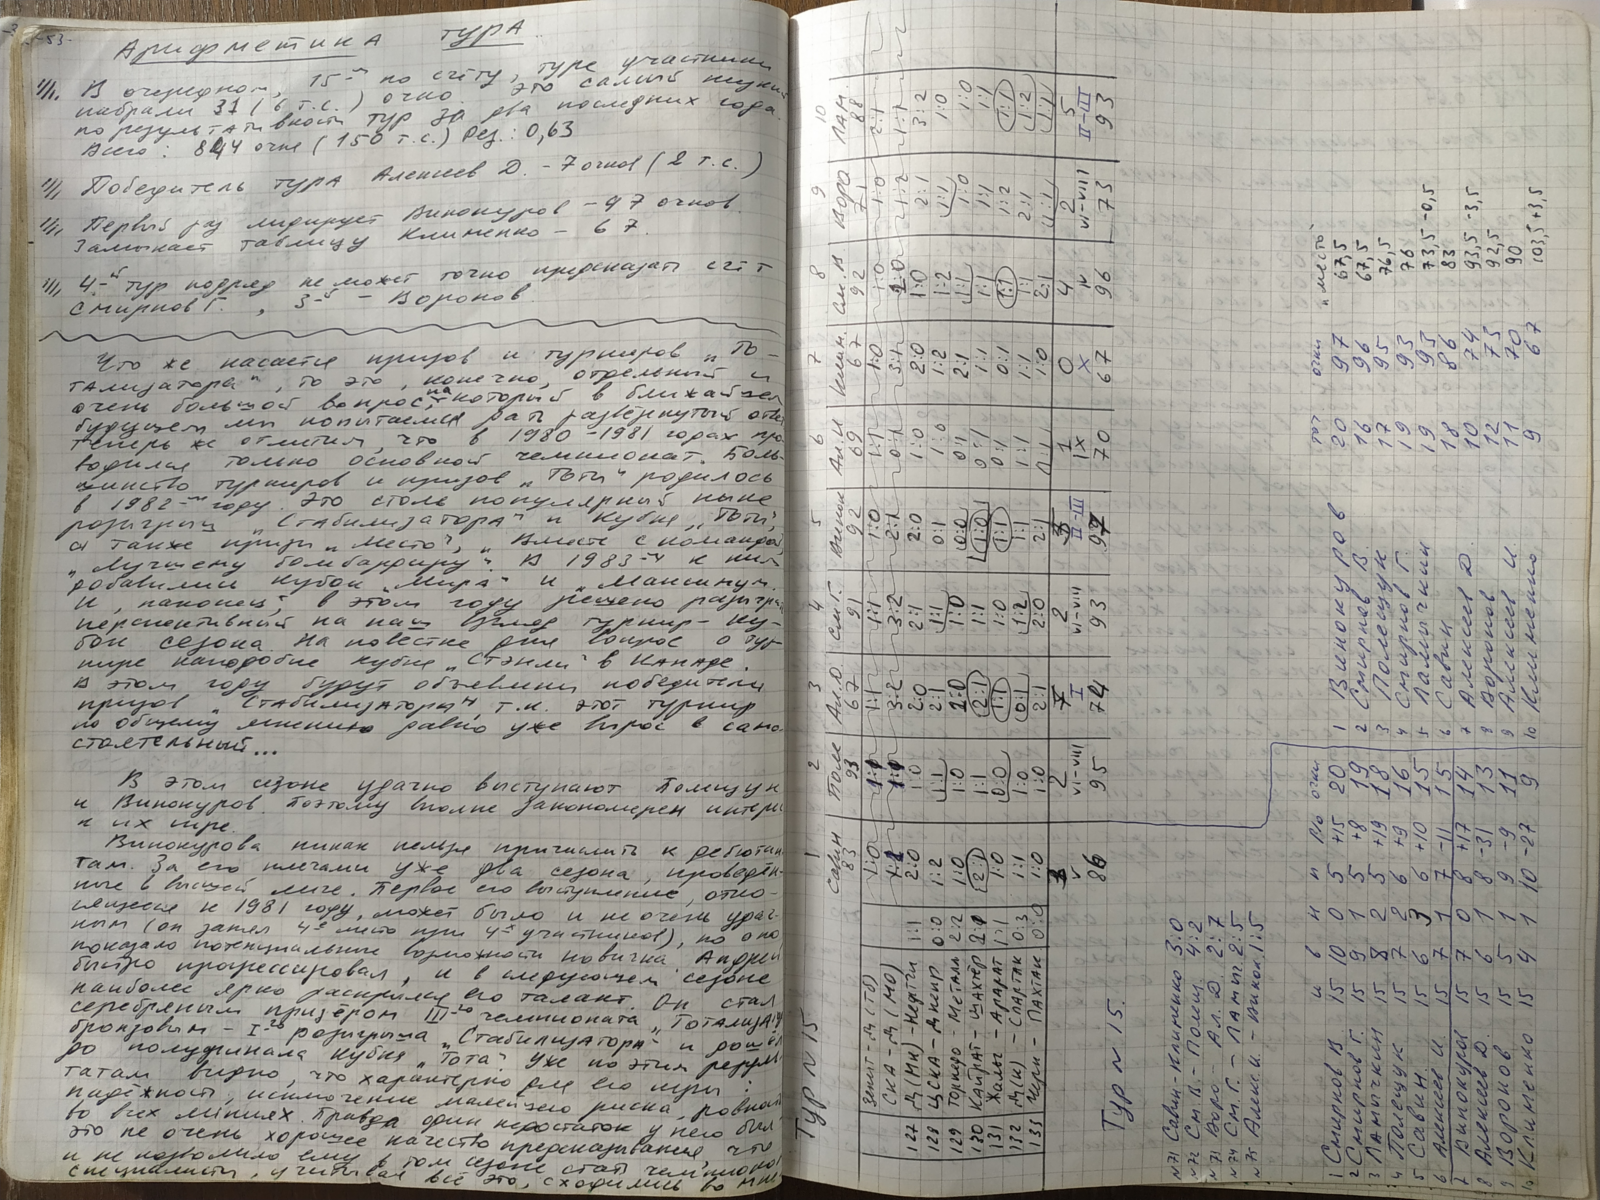 -53-
Арифметика тура
В очередном, 15-м по счёту, туре участники
набрали 31 (6 т.с.) очко. Это самый
по результативности тур за два последних года.
Всего: 844 очка (150 т.с.) Рез.: 0,63
Победитель тура Алексеев Д. - 7 очков (2 т.с.)
Первый раз лидирует Винокуров - 97 очков.
Замыкает таблицу Клименко - 67.
4-й тур подряд не может точно предсказать счёт
Смирнов Г., 3-й - Воронов
Что же касается призов и турниров „То-
тализатора", то это, конечно, отдельный и
очень большой вопрос, на который в ближайшем
будущем мы попытаемся дать развёрнутый ответ
теперь же отметим, что в 1980-1981 годах про-
водился только основной чемпионат. Боль-
шинство турниров и призов „Тоты" родилось
в 1982-м году. Это столь популярный ныне
розыгрыш „Стабилизатора" и Кубка „Тоты",
а также призы „Место", „Вместе с командой",
„Лучшему бомбардиру". В 1983-м к ним
добавились Кубок „Мира" и „Максимум".
И, наконец, в этом году решено разыграть
перспективный на наш взгляд турнир - Ку-
бок сезона. На повестке дня вопрос о тур-
нире наподобие кубка „Стэнли" в Канаде.
В этом году будут объявлены победители
призов „Стабилизаторы", т.к. этот турнир
по общему мнению давно уже вырос в само-
стоятельный...
В этом сезоне удачно выступают Полещук
и Винокуров. Поэтому вполне закономерен интерес
к их игре.
Винокурова никак нельзя причислить к дебютан-
там. За его плечами уже два сезона, проведён-
ные в высшей лиге. Первое его выступление, отно-
сящееся к 1981 году, может было и не очень удач-
ным (он занял 4-е место при 4-х участников), но оно
показало потенциальные возможности новичка. Андрей
быстро прогрессировал, и в следующем сезоне
наиболее ярко раскрылся его талант. Он стал
серебряным призёром III-го чемпионата „Тотализатор",
бронзовым - I-го розыгрыша „Стабилизатора" и дошёл
до полуфинала Кубка „Тота". Уже по этим резуль-
татам видно, что характерно для его игры:
надёжность, исключение малейшего риска, ровность
во всех линиях. Правда один недостаток у него был
это не очень хорошее качество предсказывания, что
и не позволило ему в том сезоне стать чемпионом
специалисты, учитывая всё это, сходились во мне-
Тур N 15
1 2 3 4 5 6 7 8 9 10
Савин Поле Ал.Д См.Г. Винок Ал.И Клим. См.В Воро Лам.
83 93 67 91 92 69 67 92 71 88
Зенит - Д (Тб) 1:0 1:0 1:1 1:1 1:0 1:1 1:0 1:0 1:0 2:1
СКА - Д (Мо) 1:0 3:2 3:2 2:1 0:1 3:1 2:0 1:2 1:1
127 Д (Мн) - Нефтчи 1:1 2:0 1:0 2:0 2:1 2:0 1:0 2:0 1:0 2:1 3:2
128 ЦСКА - Днепр 0:0 1:2 1:1 2:1 1:1 0:1 1:0 1:2 1:2 1:1 1:0
129 Торпедо - Металл 2:2 1:0 1:0 1:0 1:0 0:0 0:1 2:1 1:1 1:0 1:0
130 Кайрат - Шахтёр 2:0 2:1 1:1 2:1 1:1 1:0 0:1 1:1 1:1 1:1 1:1
131 Жальг - Арарат 1:1 1:0 0:0 1:1 1:0 1:1 0:1 0:1 1:1 1:2 1:1
132 Д (К) - Спартак 0:3 1:1 1:0 0:1 1:2 1:1 1:1 1:1 1:1 2:1 1:2
133 Черн - Пахтак 0:0 1:0 1:0 2:1 2:0 2:1 0:1 1:0 2:1 1:1 1:1
3 2 7 2 5 1 0 4 2 5
V VI-VIII I VI-VIII II-III IX X IV VI-VIII II-III
86 95 74 93 97 70 67 96 73 93
Тур N 15.
N71 Савин - Клименко 3:0
N72 См.В. - Полещ. 4:2
N73 Воро - Ал. Д. 2:7
N74 См.Г. - Ламыч. 2:5
N75 Алек.И. - Винок. 1:5
и в н п р/о очки
1 Смирнов В 15 10 0 5 +15 20
2 Смирнов Г. 15 9 1 5 +8 19
3 Ламычкин 15 8 2 5 +19 18
4 Полещук 15 7 2 6 +9 16
5 Савин 15 6 3 6 +10 15
6 Алексеев И 15 7 1 7 -11 15
7 Винокуров 15 7 0 8 +17 14
8 Алексеев Д. 15 6 1 8 -31 13
9 Воронов 15 5 1 9 -9 11
10 Клименко 15 4 1 10 -27 9
тот очки „место"
1 Винокуров 20 97 67,5
2 Смирнов В. 16 96 67,5
3 Полещук 17 95 76,5
4 Смирнов Г. 19 93 76
5 Ламычкин 19 93 73,5 -0,5
6 Савин 18 86 83
7 Алексеев Д. 10 74 93,5 -3,5
8 Воронов 12 73 92,5
9 Алексеев И 11 70 90
10 Клименко 9 67 103,5 +3,5